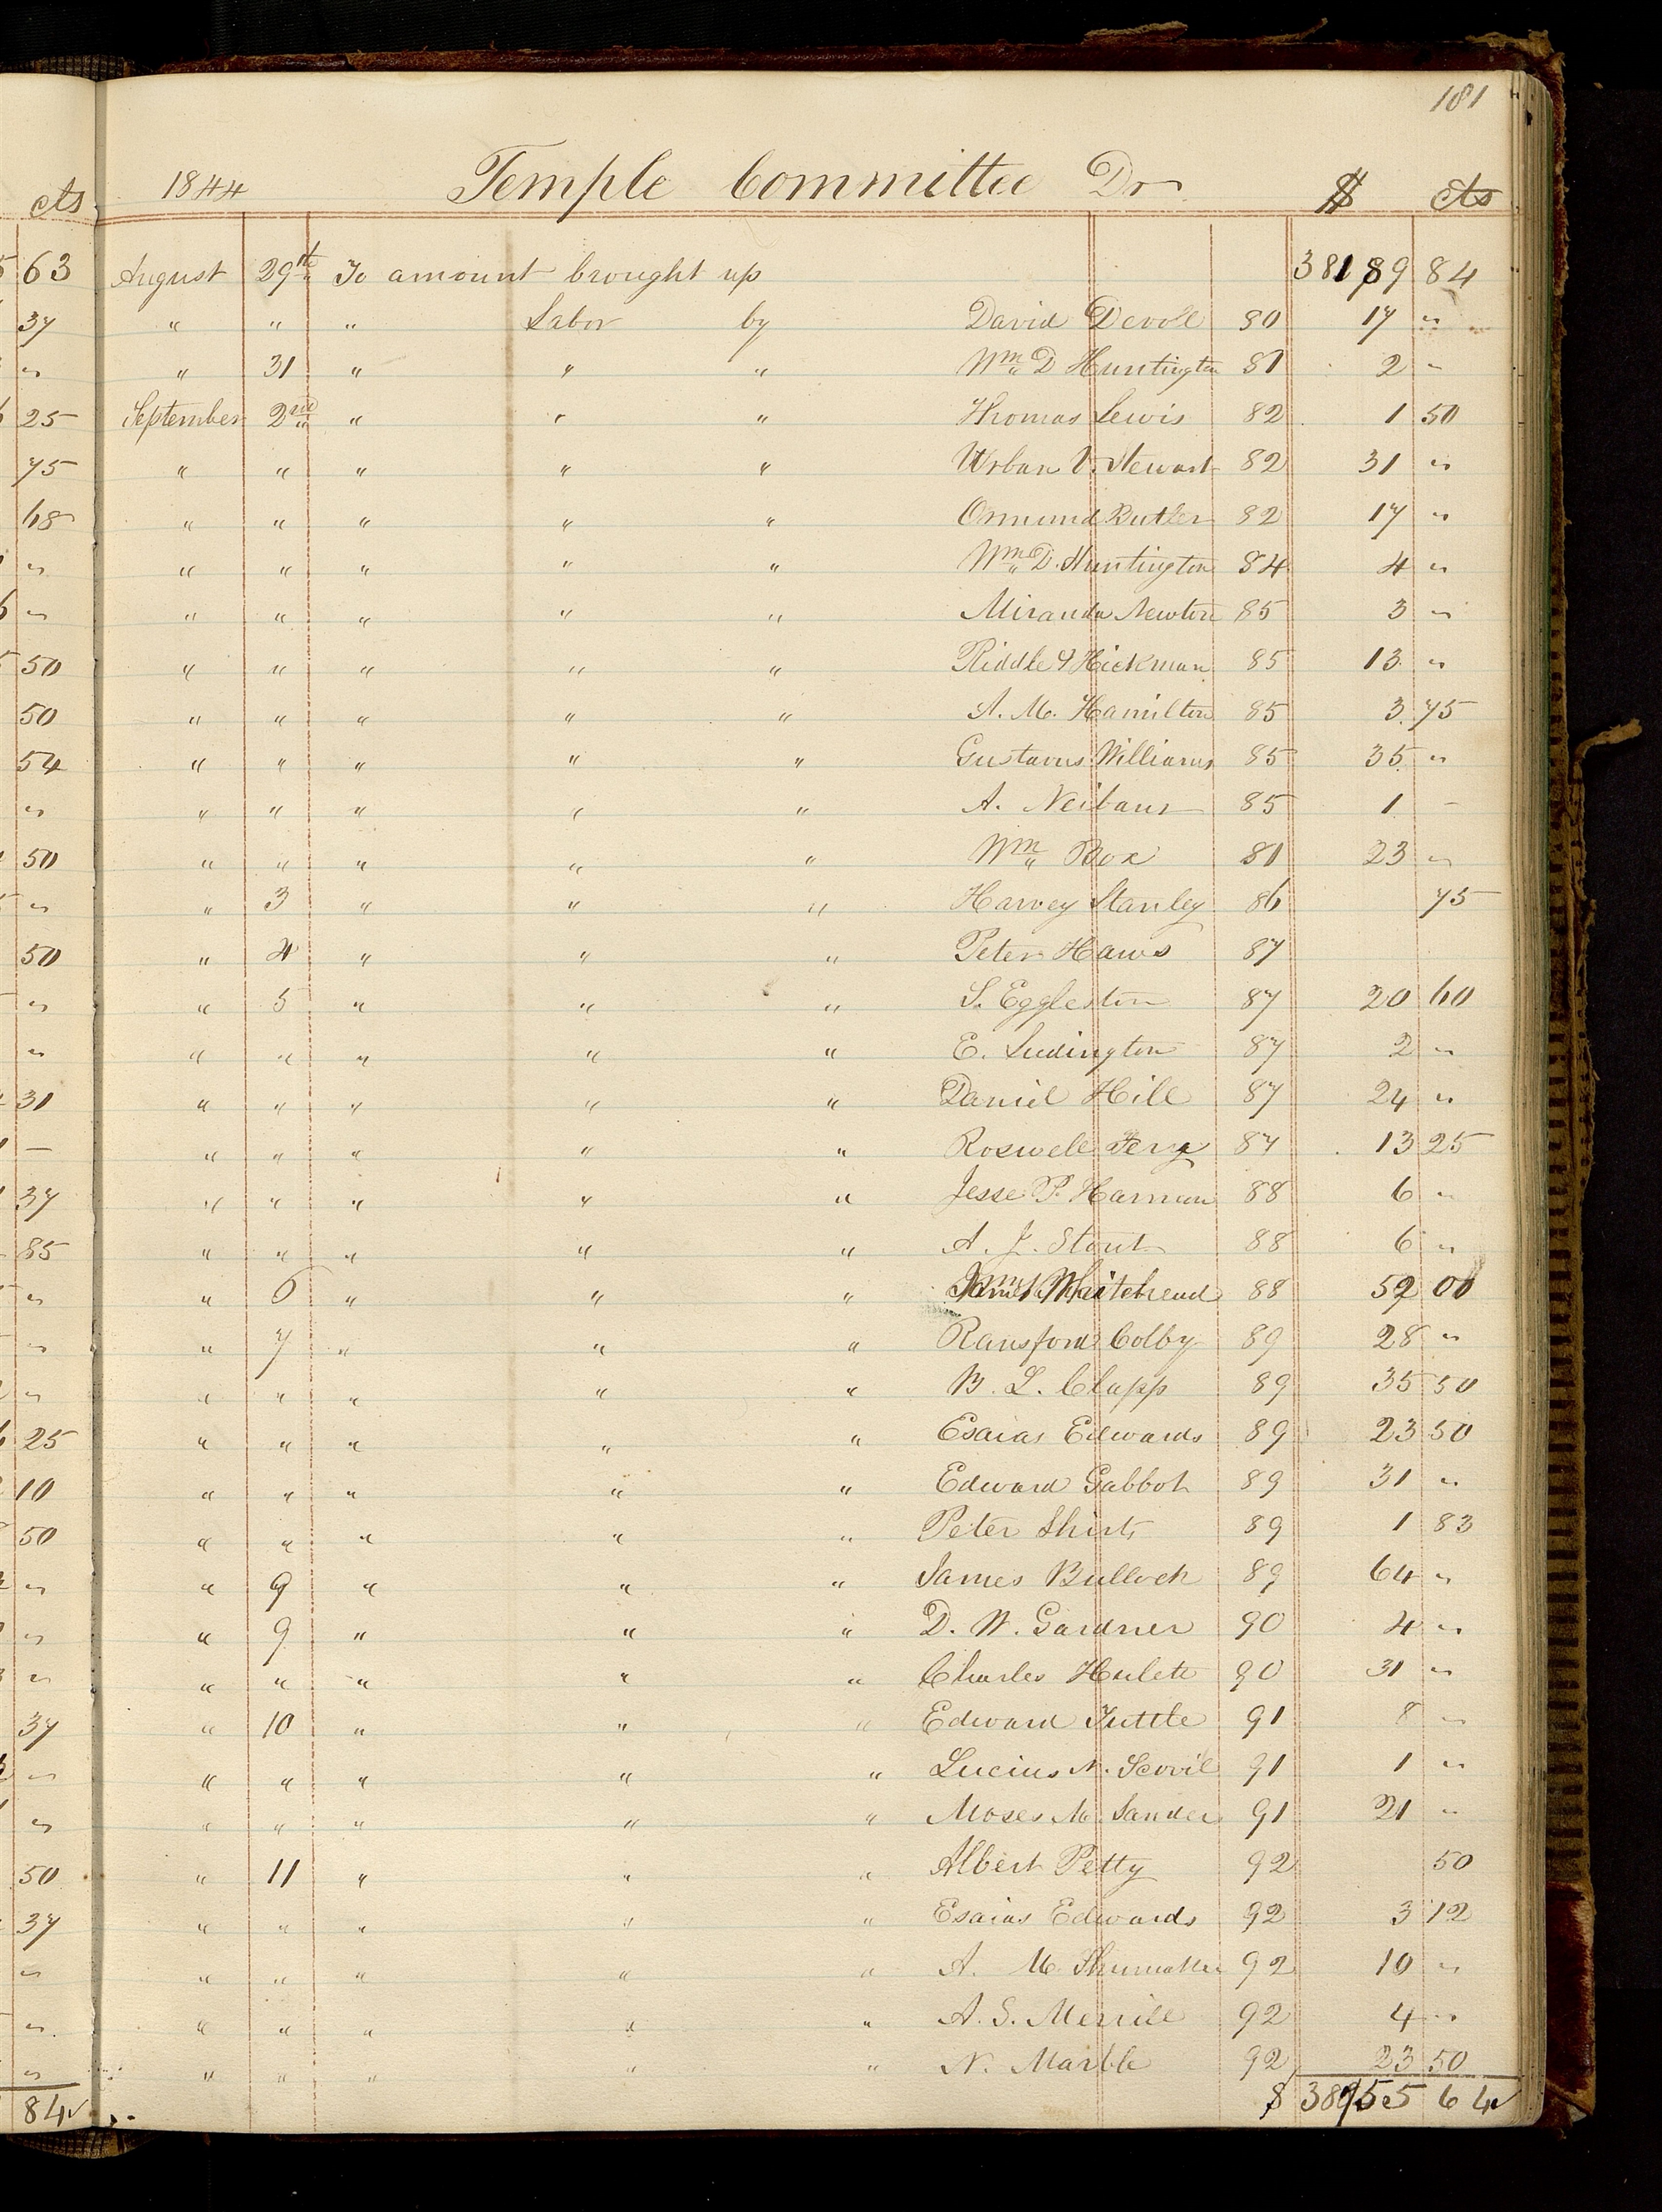 181
1844 Temple Committee Dr $ cts
August 29th To amount brought up 38189 84
" " " Labor by David Devoll 80 17 "
" 31 " " " Wm D Huntington 81 2 "
September 2nd " " " Thomas Lewis 82 1 50
" " " " " Urban V. Stewart 82 31 "
" " " " " Ormund Butler 82 17 "
" " " " " Wm D. Huntington 84 4 "
" " " " " Miranda Newton 85 3 "
" " " " " Riddle & Hickman 85 13 "
" " " " " A. M. Hamilton 85 3 75
" " " " " Gustavus Williams 85 35 "
" " " " " A. Neibaur 85 1 -
" " " " " Wm Box 81 23 "
" 3 " " " Harvey Stanley 86 75
" 4 " " " Peter Haws 87
" 5 " " " S. Eggleston 87 20 60
" " " " " E. Ludington 87 2 "
" " " " " Daniel Hill 87 24 "
" " " " " Roswell 87 13 25
" " " " " Jesse P. Harmon 88 6 "
" " " " " A. J. Stout 88 6 "
" 6 " " " Whitehead 88 52 00
" 7 " " " Ransford Colby 89 28 "
" " " " " B. L. Clapp 89 35 50
" " " " " Esaias Edwards 89 23 50
" " " " " Edward Gabbot 89 31 "
" " " " " Peter Shirts 89 1 83
" 9 " " " James Bulloch 89 64 "
" 9 " " " D. W. Gardner 90 4 "
" " " " " Charles Hulett 90 31 "
" 10 " " " Edward Tuttle 91 8 "
" " " " " Lucius N. Scovil 91 1 "
" " " " " Moses M. Sander 91 21 "
" 11 " " " Albert Petty 92 50
" " " " " Esaias Edwards 92 3 12
" " " " " A. M. 92 10 "
" " " " " A. S. Merrill 92 4 "
" " " " " N. Marble 92 23 50
$ 64
cts
63
37
"
25
75
68
"
"
50
50
54
"
50
"
50
"
"
31
-
37
85
"
"
"
25
10
50
"
"
"
37
"
"
50
37
"
"
"
84